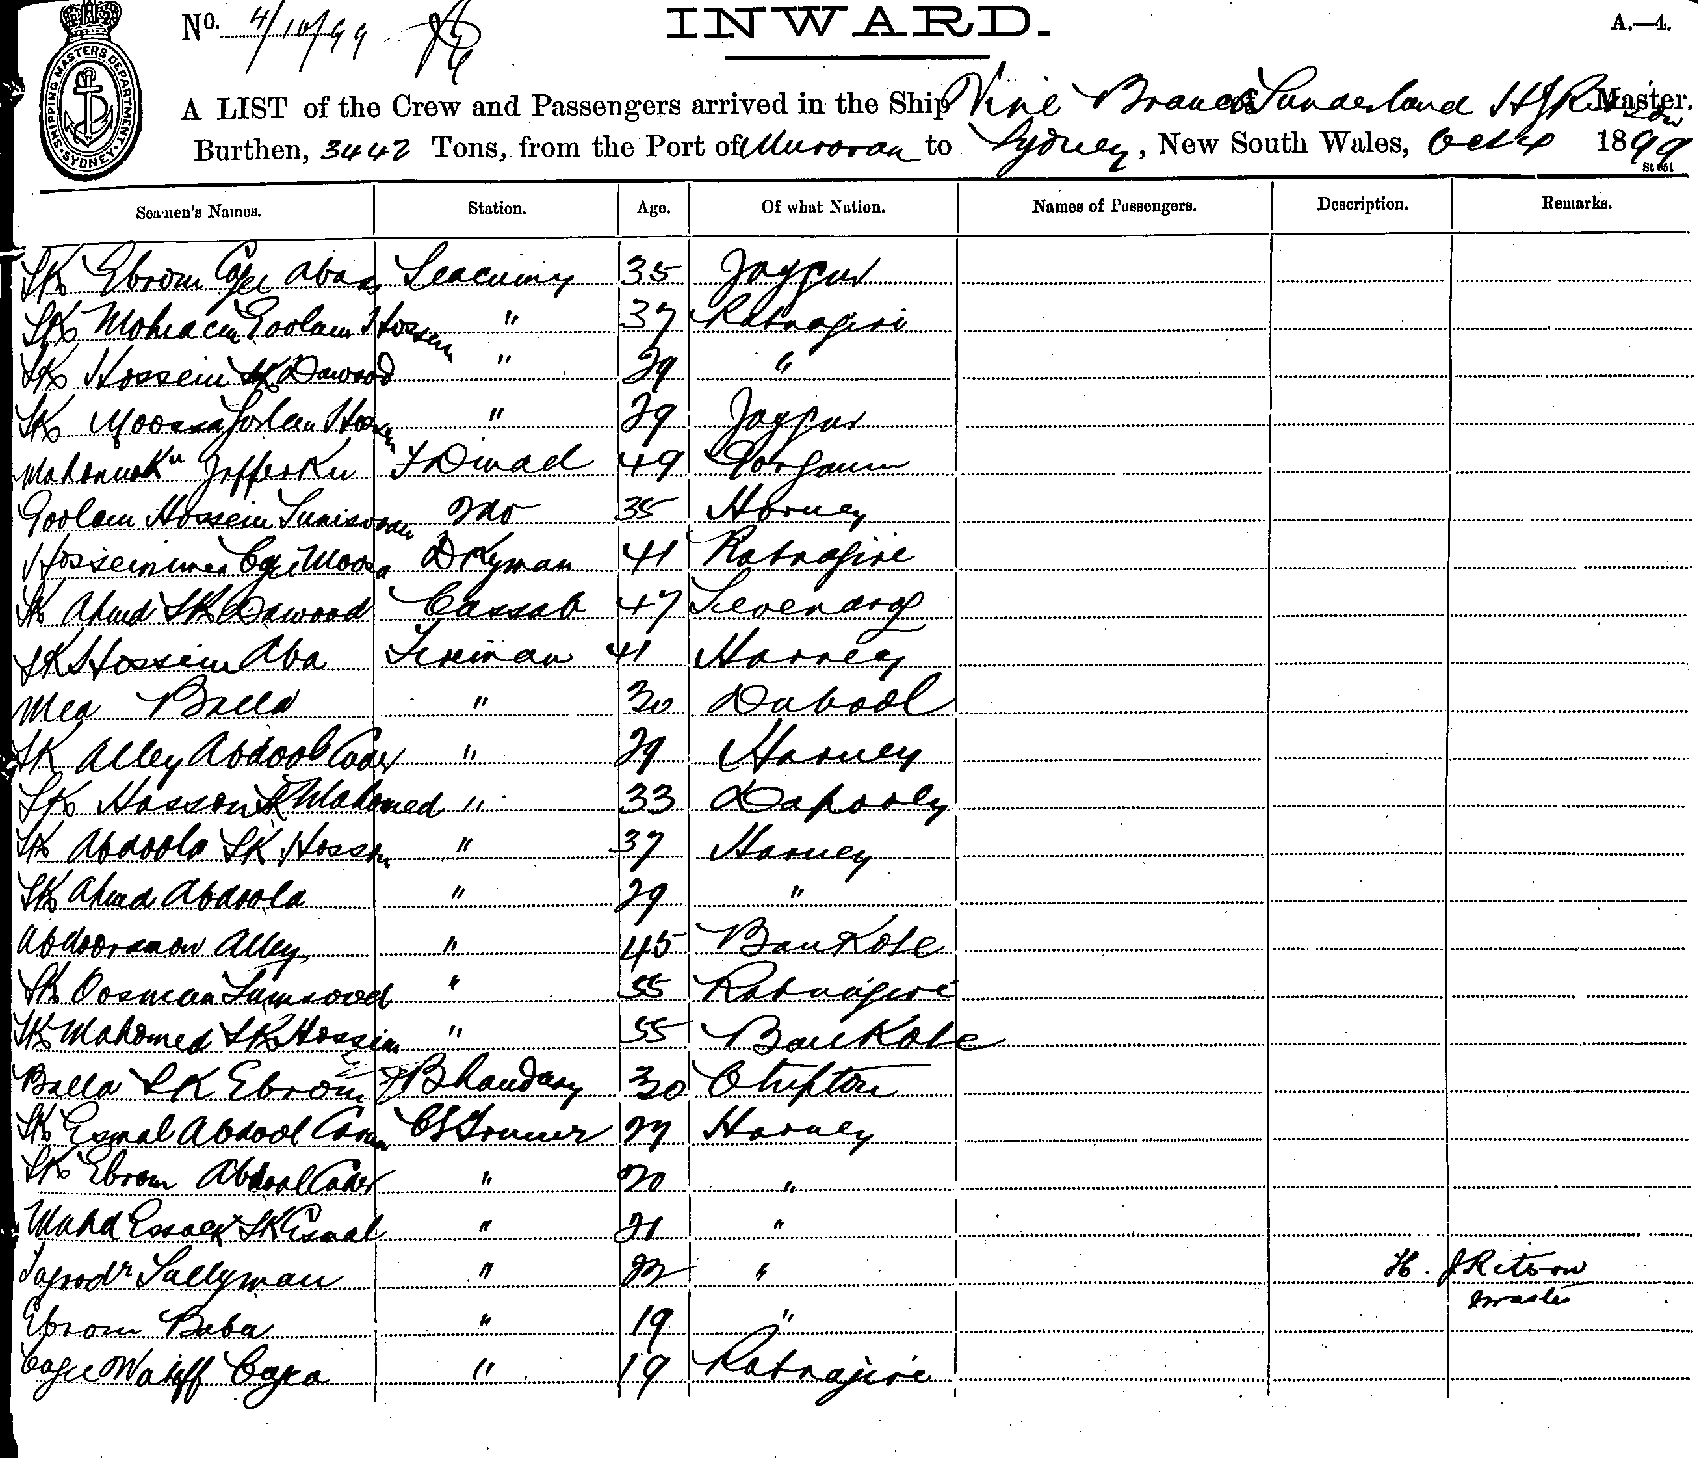 No. 4/10/99
INWARD.
A.—4.
SHIPPING MASTERS DEPARTMENT SYDNEY
A LIST of the Crew and Passengers arrived in the Ship Vine Branch Sunderland H J Ritson Master.
Burthen, 3442 Tons, from the Port of Muroran to Sydney, New South Wales, Oct 4 1899
Seamen's Names. Station. Age. Of what Nation. Names of Passengers. Description. Remarks.
SK Ebrom Cage Abas 35 Jaypur
SK Mohiacin Goolam Hossein " 37 Ratnagiri
SK Hossein SK Dawood " 29 "
SK Moossa Goolam Hossein " 29 Jaypur
Jafferku 49
Goolam Hossein 35 Horney
Cage Moosa 41 Ratnagiri
SK Ahmd SK Dawood Cassab 47
SK Hossein Aba Fireman 41 Harney
Mea Balla " 30 Dabool
SK Alley Abdool Cader " 29 Harney
SK Hassan SK Mahomed " 33 Dapooly
SK Abdoola SK Hossein " 37 Harney
SK Ahmd Abdoola " 29 "
Abdooraman Alley " 45 Bankote
SK Oosman " 55 Ratnagiri
SK Mahomed SK Hossein " 55 Bankote
Balla SK Ebrom Bhandary 30
SK Esmal Abdool 27 Harney
SK Ebrom Abdool Cader " 20 "
Mahd Essack SK Esmal " 21 "
Sallyman " 22 "
H. J Ritson
Master
Ebrom Baba " 19 "
Cage " 19 Ratnagiri